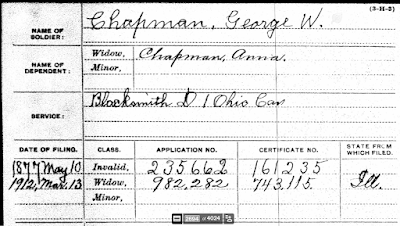 (3-H-3)
NAME OF SOLDIER: Chapman, George W.
NAME OF DEPENDENT: Widow, Chapman, Anna.
Minor,
SERVICE: Blacksmith D 1 Ohio Cav
DATE OF FILING. CLASS. APPLICATION NO. CERTIFICATE NO. STATE FROM WHICH FILED.
1877 May 10 Invalid, 235662 161235
1912, Mar. 13 Widow, 982,282 743,115. Ill.
Minor,
2694 of 4024